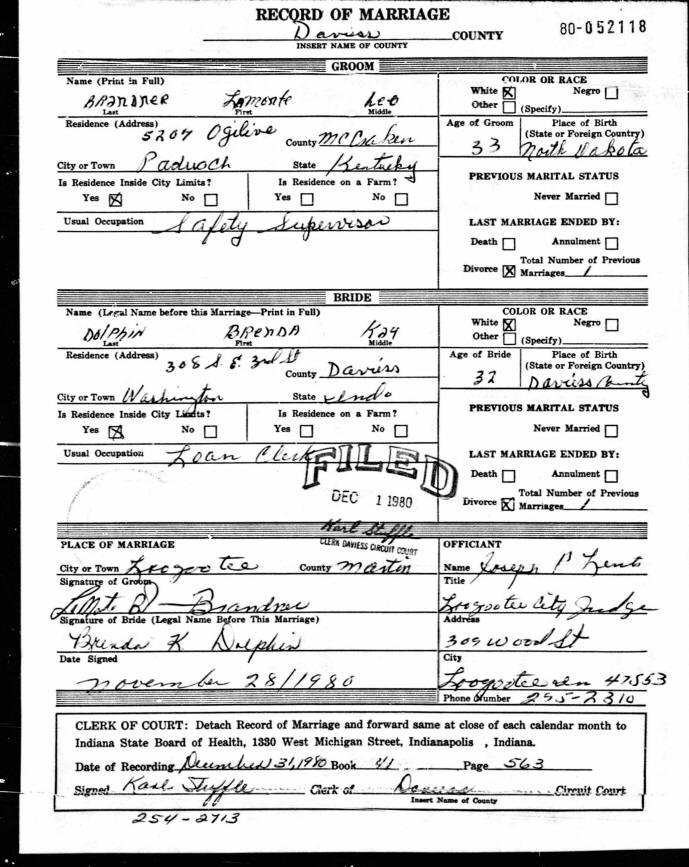 RECORD OF MARRIAGE
Daviess COUNTY 80-052118
INSERT NAME OF COUNTY
GROOM
Name (Print in Full)
BRANDNER LaMonte Leo
Last First Middle
Residence (Address)
5207 Ogilive County McCraken
City or Town Paducah State Kentucky
Is Residence Inside City Limits? Is Residence on a Farm?
Yes ☒ No ☐ Yes ☐ No ☐
Usual Occupation Safety Supervisor
COLOR OR RACE
White ☒ Negro ☐
Other ☐ (Specify)
Age of Groom Place of Birth
(State or Foreign Country)
33 North Dakota
PREVIOUS MARITAL STATUS
Never Married ☐
LAST MARRIAGE ENDED BY:
Death ☐ Annulment ☐
Total Number of Previous
Divorce ☒ Marriages 1
BRIDE
Name (Legal Name before this Marriage—Print in Full)
DOLPHIN BRENDA KAY
Last First Middle
Residence (Address)
308 S. E. 3rd St County Daviess
City or Town Washington State Ind
Is Residence Inside City Limits? Is Residence on a Farm?
Yes ☒ No ☐ Yes ☐ No ☐
Usual Occupation Loan Clerk
COLOR OR RACE
White ☒ Negro ☐
Other ☐ (Specify)
Age of Bride Place of Birth
(State or Foreign Country)
32 Daviess County
PREVIOUS MARITAL STATUS
Never Married ☐
LAST MARRIAGE ENDED BY:
Death ☐ Annulment ☐
Total Number of Previous
Divorce ☒ Marriages 1
FILED
DEC 1 1980
Karl Stuffle
CLERK DAVIESS CIRCUIT COURT
PLACE OF MARRIAGE
City or Town Loogootee County Martin
Signature of Groom
Brandner
Signature of Bride (Legal Name Before This Marriage)
Brenda K Dolphin
Date Signed
November 28/1980
OFFICIANT
Name Joseph P
Title
Loogootee City Judge
Address
309 Wood St
City
Loogootee Ind 47553
Phone Number 295-2310
CLERK OF COURT: Detach Record of Marriage and forward same at close of each calendar month to
Indiana State Board of Health, 1330 West Michigan Street, Indianapolis , Indiana.
Date of Recording December 31, 1980 Book 41 Page 563
Signed Karl Stuffle Clerk of Daviess Circuit Court
Insert Name of County
254-2713